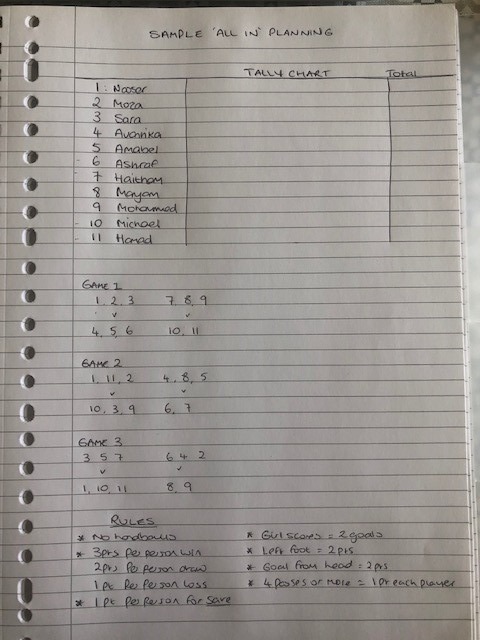 SAMPLE 'ALL IN' PLANNING
TALLY CHART Total
1 Nasser
2 Moza
3 Sara
4 Avantika
5 Amabel
6 Ashraf
7 Haitham
8 Maryam
9 Mohammed
10 Michael
11 Hamad
GAME 1
1, 2, 3 7, 8, 9
v v
4, 5, 6 10, 11
GAME 2
1, 11, 2 4, 8, 5
v v
10, 3, 9 6, 7
GAME 3
3 5 7 6 4 2
v v
1, 10, 11 8, 9
RULES
* No handballs * Girl scores = 2 goals
* 3pts per person win * Left foot = 2pts
2pts per person draw * Goal from head = 2pts
1pt Per Person Loss * 4 Passes or More = 1pt each player
* 1 Pt Per Person For Save